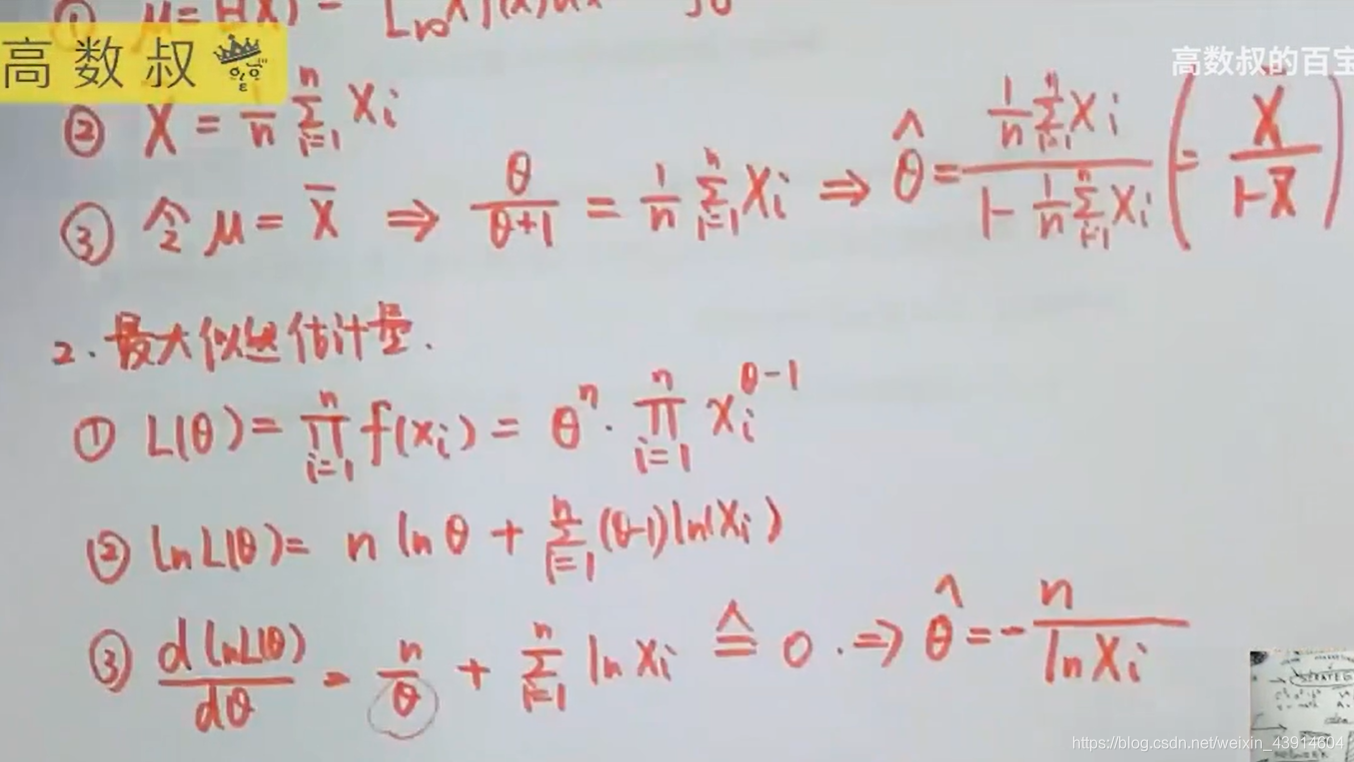 ① μ = E(X) =
高数叔
高数叔的百宝
② X̄ = 1/n ∑_{i=1}^{n} X_i
③ 令 μ = X̄ ⇒ θ/(θ+1) = 1/n ∑_{i=1}^{n} X_i ⇒ θ̂ = (1/n ∑_{i=1}^{n} X_i)/(1 - 1/n ∑_{i=1}^{n} X_i) (= X̄/(1-X̄))
2. 最大似然估计量.
① L(θ) = ∏_{i=1}^{n} f(x_i) = θ^n · ∏_{i=1}^{n} x_i^{θ-1}
② ln L(θ) = n ln θ + ∑_{i=1}^{n} (θ-1) ln(X_i)
③ d ln L(θ)/dθ = n/θ + ∑_{i=1}^{n} ln X_i ≙ 0. ⇒ θ̂ = - n/ln X_i
https://blog.csdn.net/weixin_43914604